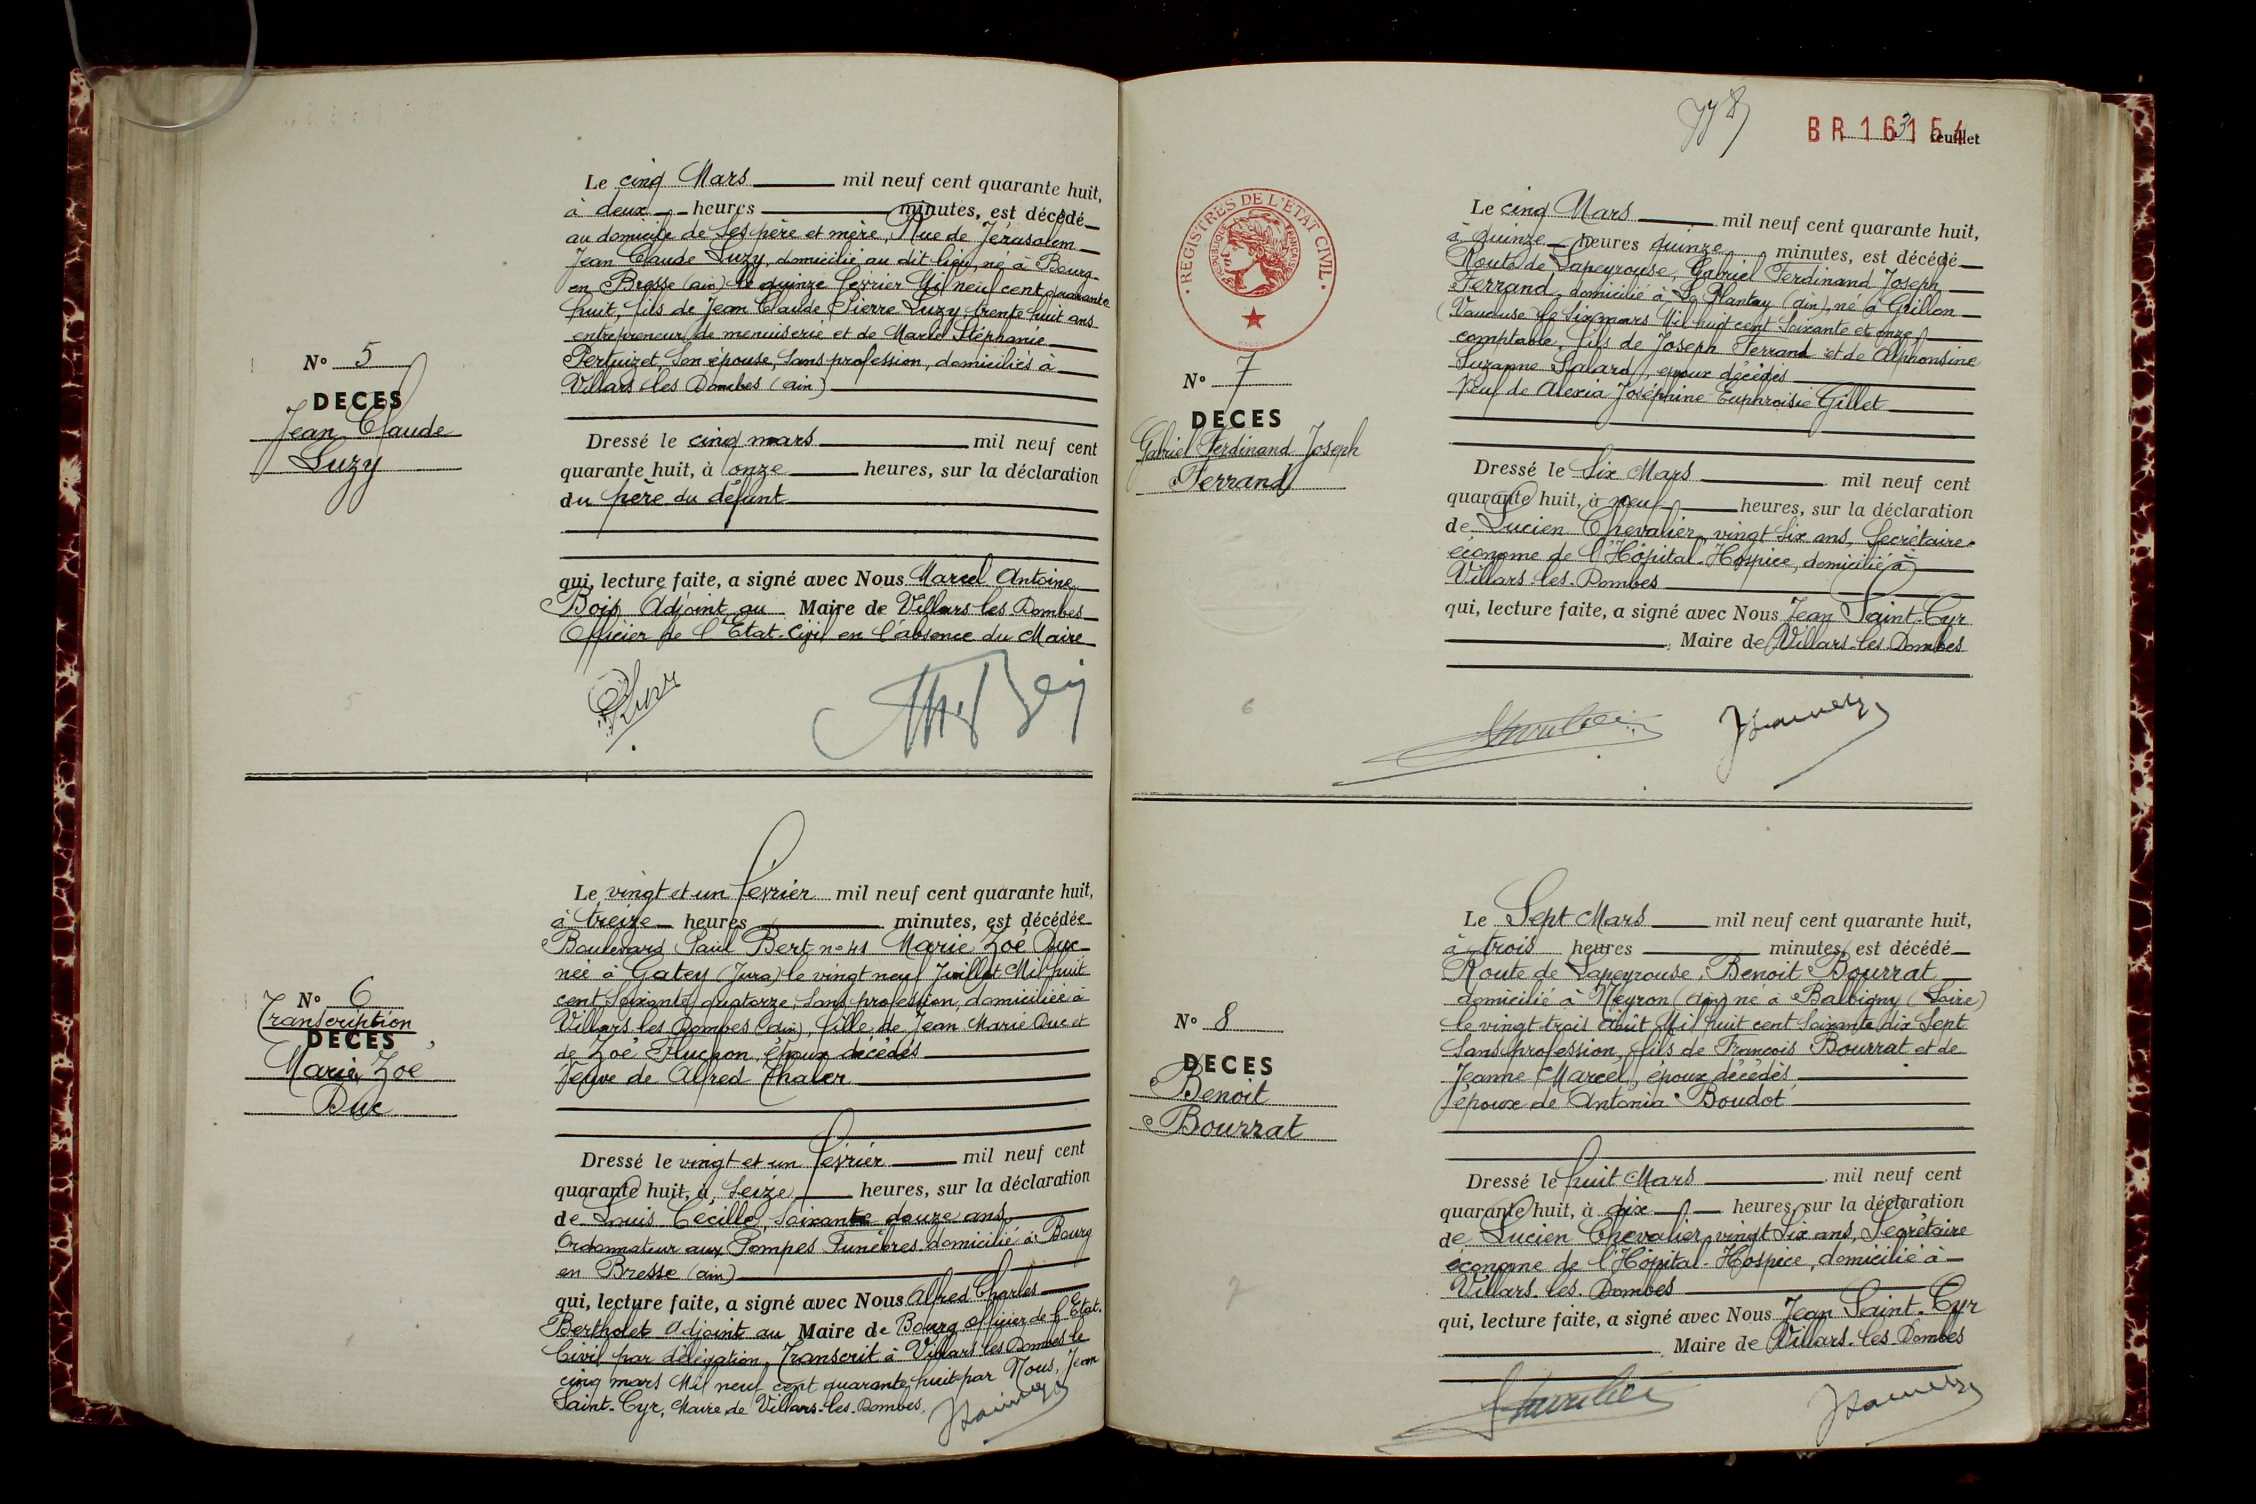 Le cinq Mars mil neuf cent quarante huit,
à deux heures minutes, est décédé
au domicile de ses père et mère, Rue de Jérusalem
Jean Claude Luzy, domicilié au dit lieu, né à Bourg-
en Bresse (ain) le quinze février Mil neuf cent quarante
huit, fils de Jean Claude Pierre Luzy, trente huit ans
entrepreneur de menuiserie et de Marie Stéphanie
Pertuizet, son épouse, sans profession, domiciliés à
Villars les Dombes (ain)
N° 5
DECES
Jean Claude
Luzy
Dressé le cinq mars mil neuf cent
quarante huit, à onze heures, sur la déclaration
du père du défunt
qui, lecture faite, a signé avec Nous Marcel Antoine
Bois Adjoint au Maire de Villars les Dombes
Officier de l'Etat-Civil en l'absence du Maire
5
Le vingt et un février mil neuf cent quarante huit,
à treize heures minutes, est décédée
Boulevard Paul Bert n° 41 Marie Zoé Duc
née à Gatey (Jura) le vingt neuf Juillet Mil huit
cent soixante quatorze, sans profession, domiciliée à
Villars les Dombes (ain), fille de Jean Marie Duc et
de Zoé Fluchon, époux décédés
Veuve de Alfred Thaler
N° 6
Transcription
DECES
Marie Zoé
Duc
Dressé le vingt et un février mil neuf cent
quarante huit, à seize heures, sur la déclaration
de Louis Cécille, soixante douze ans,
Ordonnateur aux Pompes Funèbres domicilié à Bourg
en Bresse (ain)
qui, lecture faite, a signé avec Nous Alfred Charles
Bertholet Adjoint au Maire de Bourg officier de l'Etat-
Civil par délégation. Transcrit à Villars les Dombes le
cinq mars Mil neuf cent quarante huit par Nous, Jean
Saint-Cyr, Maire de Villars-les-Dombes.
BR 163154
3
feuillet
REGISTRES DE L'ETAT CIVIL
REPUBLIQUE FRANCAISE
Le cinq Mars mil neuf cent quarante huit,
à quinze heures quinze minutes, est décédé
Route de Lapeyrouse, Gabriel Ferdinand Joseph
Ferrand, domicilié à Le Plantay (ain), né à Grillon
(Vaucluse) le six mars Mil huit cent soixante et onze
comptable, fils de Joseph Ferrand et de Alphonsine
Suzanne Salard, époux décédés
Veuf de Alexia Joséphine Euphroisie Gillet
N° 7
DECES
Gabriel Ferdinand Joseph
Ferrand
Dressé le Six Mars mil neuf cent
quarante huit, à neuf heures, sur la déclaration
de Lucien Chevalier, vingt six ans, Secrétaire-
économe de l'Hôpital-Hospice, domicilié à
Villars-les-Dombes
qui, lecture faite, a signé avec Nous Jean Saint-Cyr
, Maire de Villars-les-Dombes
6
Le Sept Mars mil neuf cent quarante huit,
à trois heures minutes, est décédé
Route de Lapeyrouse, Benoit Bourrat
domicilié à Neyron (ain) né à Balbigny (Loire)
le vingt trois Août Mil huit cent soixante dix sept
sans profession, fils de François Bourrat et de
Jeanne Marcel, époux décédés
époux de Antonia Boudot
N° 8
DECES
Benoit
Bourrat
Dressé le huit Mars mil neuf cent
quarante huit, à dix heures, sur la déclaration
de Lucien Chevalier, vingt six ans, Secrétaire
économe de l'Hôpital-Hospice, domicilié à
Villars-les-Dombes
qui, lecture faite, a signé avec Nous Jean Saint-Cyr
Maire de Villars-les-Dombes
7